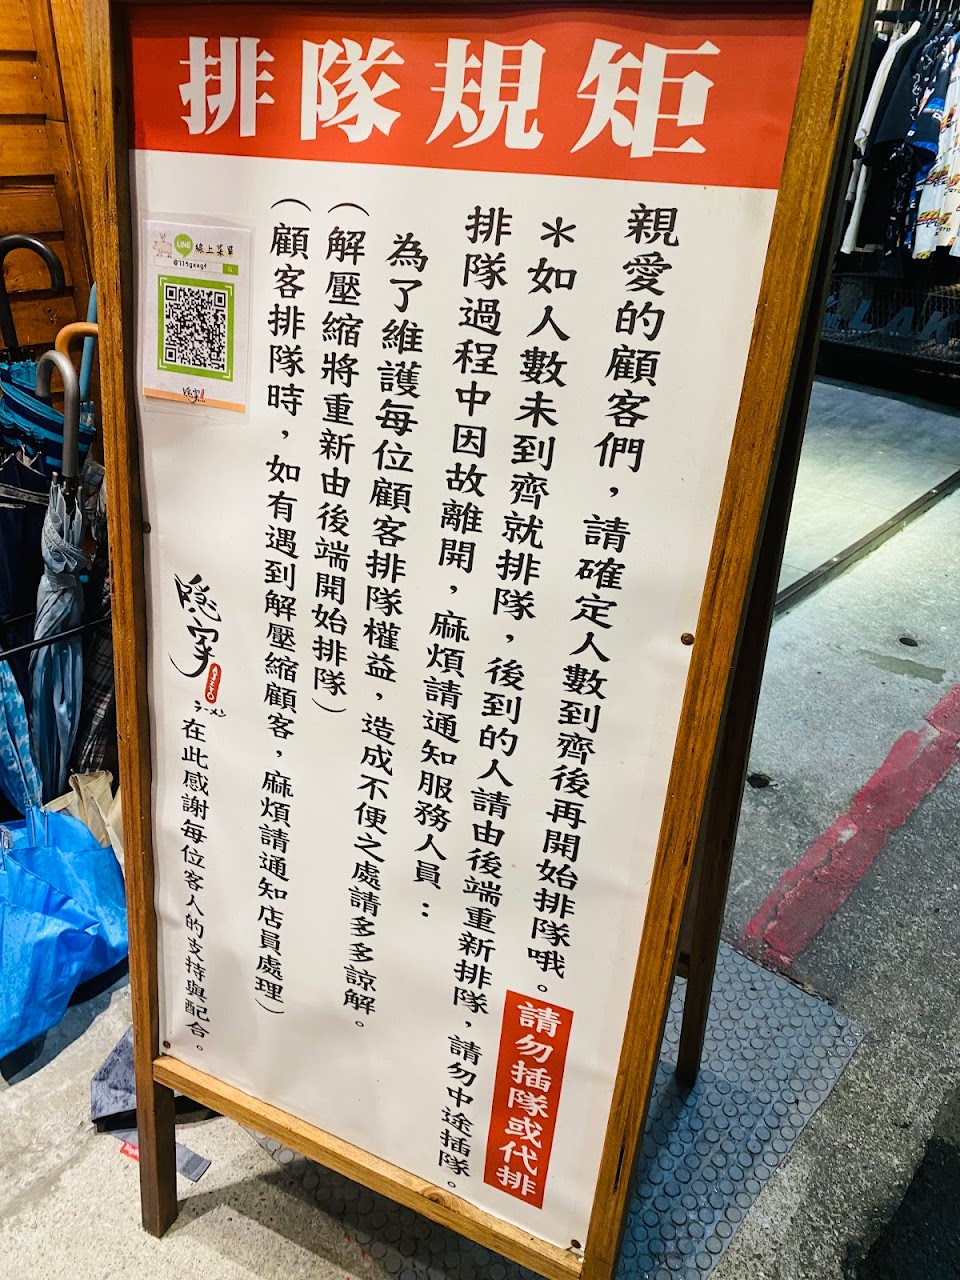 排隊規矩
親愛的顧客們，請確定人數到齊後再開始排隊哦。
請勿插隊或代排
＊如人數未到齊就排隊，後到的人請由後端重新排隊，請勿中途插隊。
排隊過程中因故離開，麻煩請通知服務人員：
為了維護每位顧客排隊權益，造成不便之處請多多諒解。
(解壓縮將重新由後端開始排隊)
(顧客排隊時，如有遇到解壓縮顧客，麻煩請通知店員處理)
LINE 線上菜單
隱家
ラーメン
在此感謝每位客人的支持與配合。